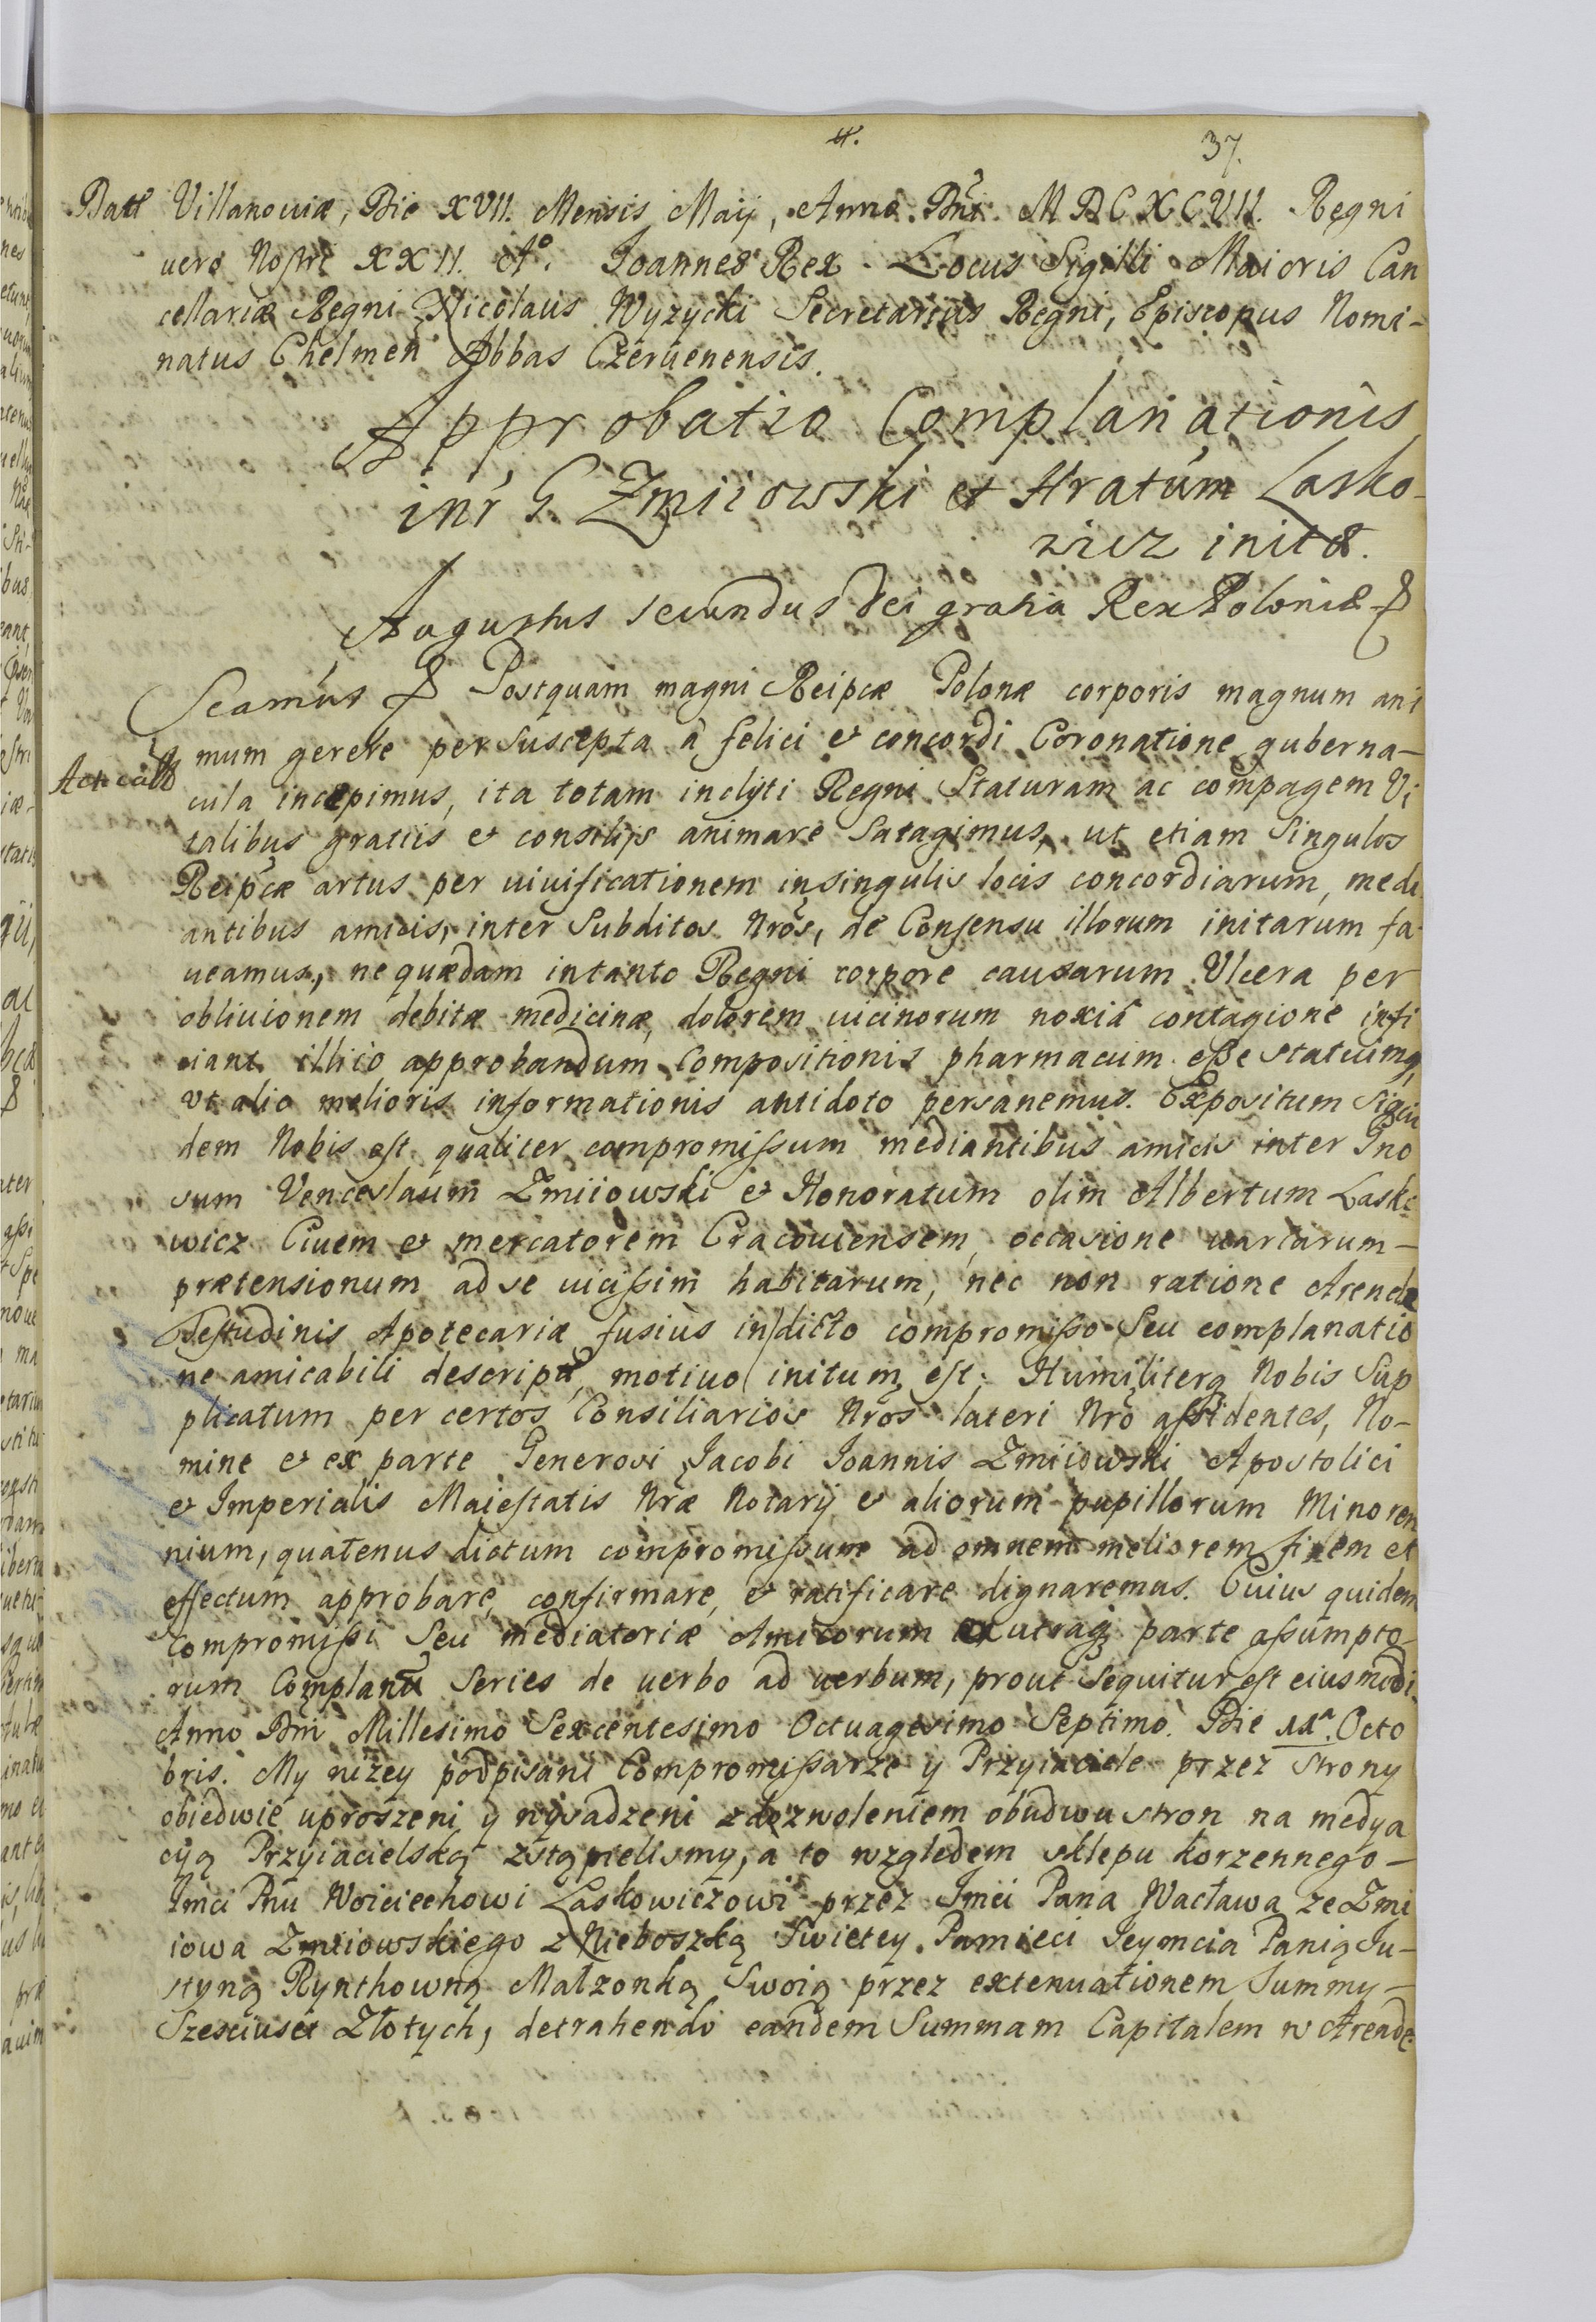 37.
Datt Villanoviæ, Die XVII. Mensis Maij, Anno Dni MDCXCVII. Regni
vero Nostri XXII. Aº. Joannes Rex. Locus Sigilli Maioris Can
cellariæ Regni Nicolaus Wyzycki Secretarius Regni, Episcopus Nomi-
natus Chelmen Abbas Czervenensis.
Approbatio Complanationis
intr G Zmiiowski et Hratum Lasko-
wicz initæ.
Augustus secundus dei gratia Rex Poloniæ
Scamus Postquam magni Reipcæ Polonæ corporis magnum ani
mum gerere per suscepta â felici et concordi Coronatione guberna-
cula incepimus, ita totam inclyti Regni Staturam ac compagem Vi
talibus gratiis et consilijs animare Satagimus, ut etiam Singulos
Reipcæ artus per vivificationem in singulis locis concordiarum, medi
antibus amicis, inter Subditos Nros, de Consensu illorum initarum fa-
ueamus, ne quædam in tanto Regni corpore causarum Vlcera per
obliuionem debitæ medicinæ, dolorem uicinorum noxiâ contagione infi
ciant illico approbandum Compositionis pharmacum esse statuimq,
vt alio melioris informationis antidoto persanemus. Expositum Siqui
dem Nobis est qualiter compromissum mediantibus amicis inter Gno
sum Venceslaum Zmiiowski et Honoratum olim Albertum Lasko
wicz Ciuem et mercatorem Cracouiensem, occasione uariarum-
prætensionum ad se uicissim habitarum, nec non ratione Arendæ
Testudinis Apotecariæ fusius in dicto compromisso Seu complanatio
ne amicabili descriptæ, motiuo initum est, Humiliterq Nobis Sup
plicatum per certos Consiliarios Nros lateri Nro assidentes, No-
mine et ex parte Generosi Jacobi Joannis Zmiiowski Apostolici
et Imperialis Maiestatis Nræ Notarij et aliorum pupillorum Minoren
nium, quatenus dictum compromissum ad omnem meliorem finem et
effectum approbare, confirmare, et ratificare dignaremus. Cuius quidem
compromissi Seu mediatoriæ Amicorum ex utraq parte assumpto-
rum Complanæ Series de uerbo ad uerbum, prout Sequitur est eiusmodi.
Anno Dni Millesimo Sexcentesimo Octuagesimo Septimo. Die 11ª. Octo
bris. My niżey podpisani Compromissarze y Przyiaciele przez Strony
obiedwie uproszeni y wysadzeni z dozwoleniem obudwu stron na medya
cyą Przyiacielską zstąpielismy, a to względem sklepu korzennego-
Jmci Pnu Woiciechowi Laskowiczowi przez Jmci Pana Wacława ze Zmi
iowa Zmiiowskiego z Nieboszką Swietey Pamieci Jeymcia Panią Ju-
styną Rynthowną Malzonką Swoią przez extenuationem Summy-
Szesciuset Złotych, detrahendo eandem Summam Capitalem w Arendę